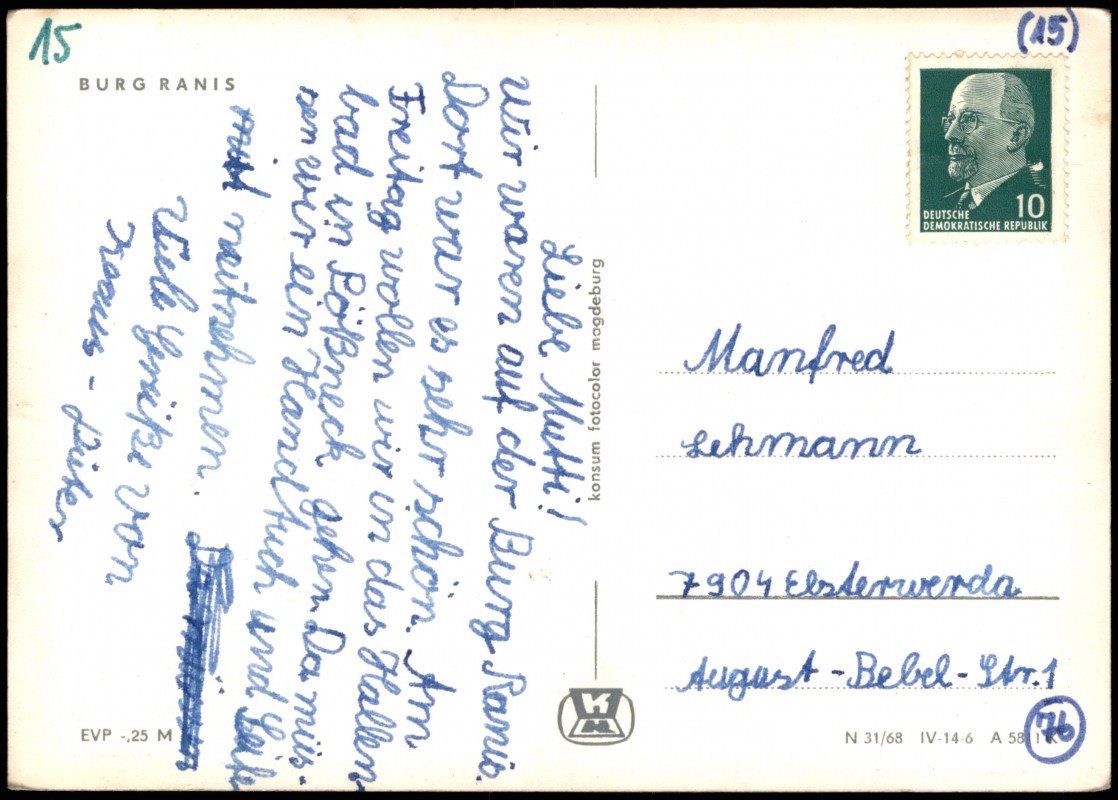 15
(15)
BURG RANIS
Liebe Mutti!
Wir waren auf der Burg Ranis.
Dort war es sehr schön. Am
Freitag wollen wir in das Hallen-
bad in Pößneck gehen. Da müs-
sen wir ein Handtuch und Seife
mit mitnehmen.
Viele Grüße von
konsum fotocolor magdeburg
DEUTSCHE
DEMOKRATISCHE REPUBLIK
10
Manfred
Lehmann
7904 Elsterwerda
August-Bebel-Str. 1
EVP -,25 M
N 31/68 IV-14-6 A
76